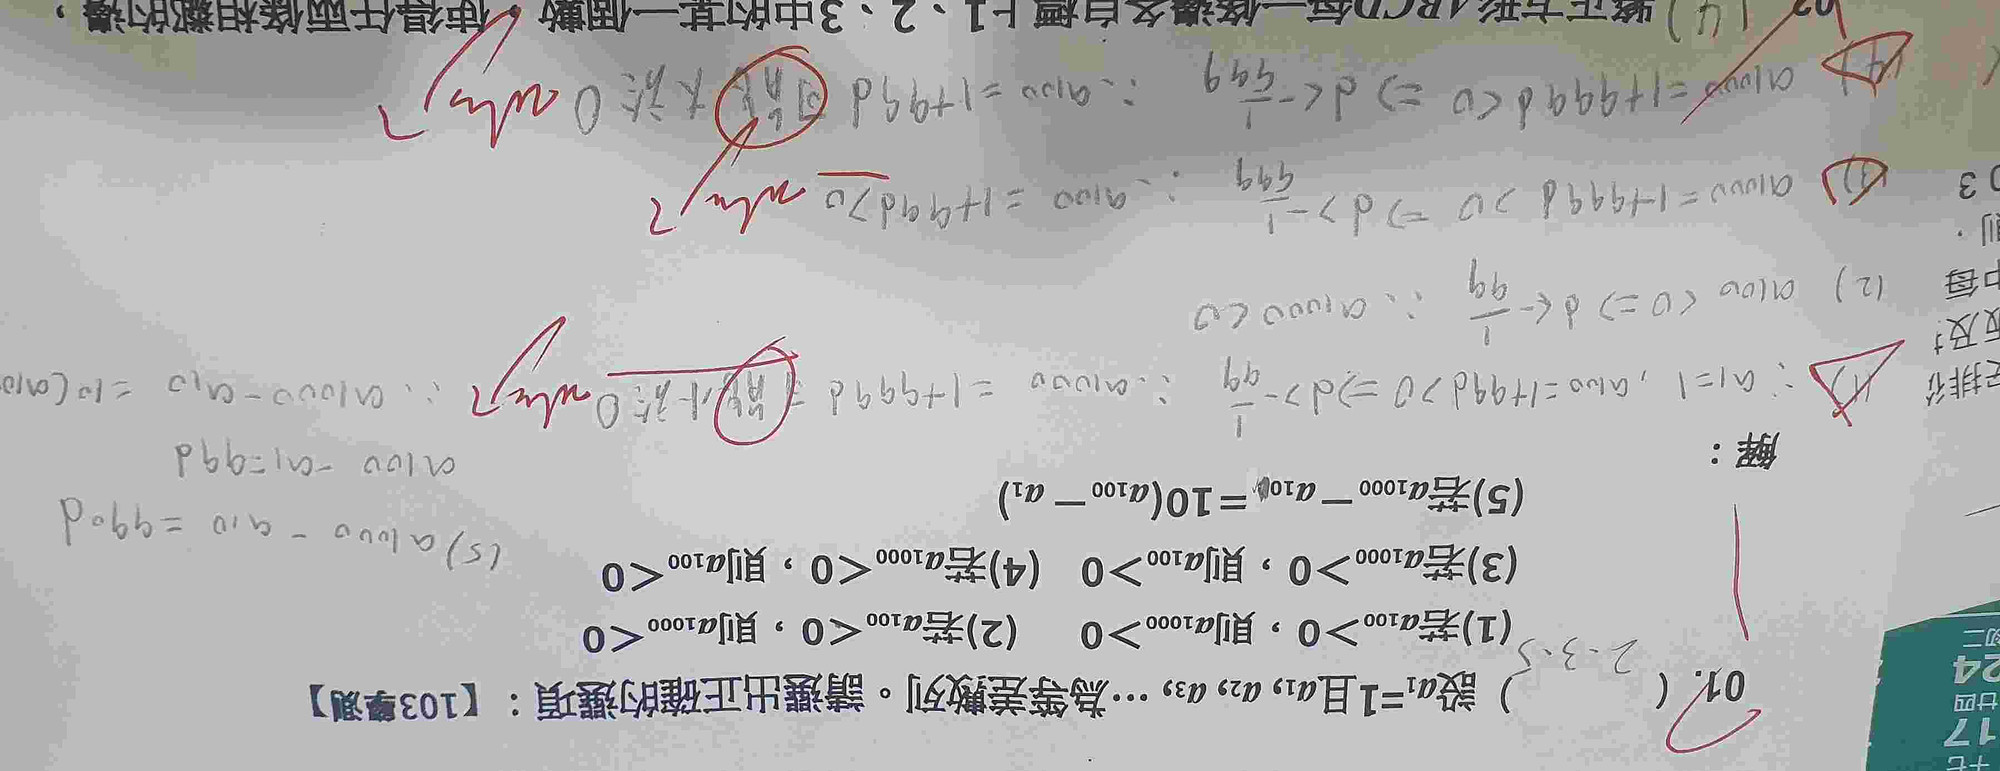 01. ( 2.3.5 ) 設a₁=1且a₁, a₂, a₃, …為等差數列。請選出正確的選項：【103學測】
(1)若a₁₀₀>0，則a₁₀₀₀>0 (2)若a₁₀₀<0，則a₁₀₀₀<0
(3)若a₁₀₀₀>0，則a₁₀₀>0 (4)若a₁₀₀₀<0，則a₁₀₀<0
(5)若a₁₀₀₀−a₁₀=10(a₁₀₀−a₁)
解：
(1) ∵ a₁=1, a₁₀₀=1+99d>0 ⇒ d>-1/99 ∴ a₁₀₀₀ =1+999d 可能小於0
(2) a₁₀₀ <0 ⇒ d<-1/99 ∴ a₁₀₀₀<0
a₁₀₀₀=1+999d >0 ⇒ d>-1/999 ∴ a₁₀₀ =1+99d>0
(4) a₁₀₀₀=1+999d<0 ⇒ d<-1/999 ∴ a₁₀₀=1+99d 可能大於0
(5) a₁₀₀₀ - a₁₀ =990d
a₁₀₀ -a₁=99d
∴ a₁₀₀₀-a₁₀ =10(a₁₀₀
02
(4) 將正方形ABCD每一條邊各自標上1、2、3中的某一個數，使得任兩條相鄰的邊，
十七
17
廿四
24
初二
安排
反及
中每
則
03